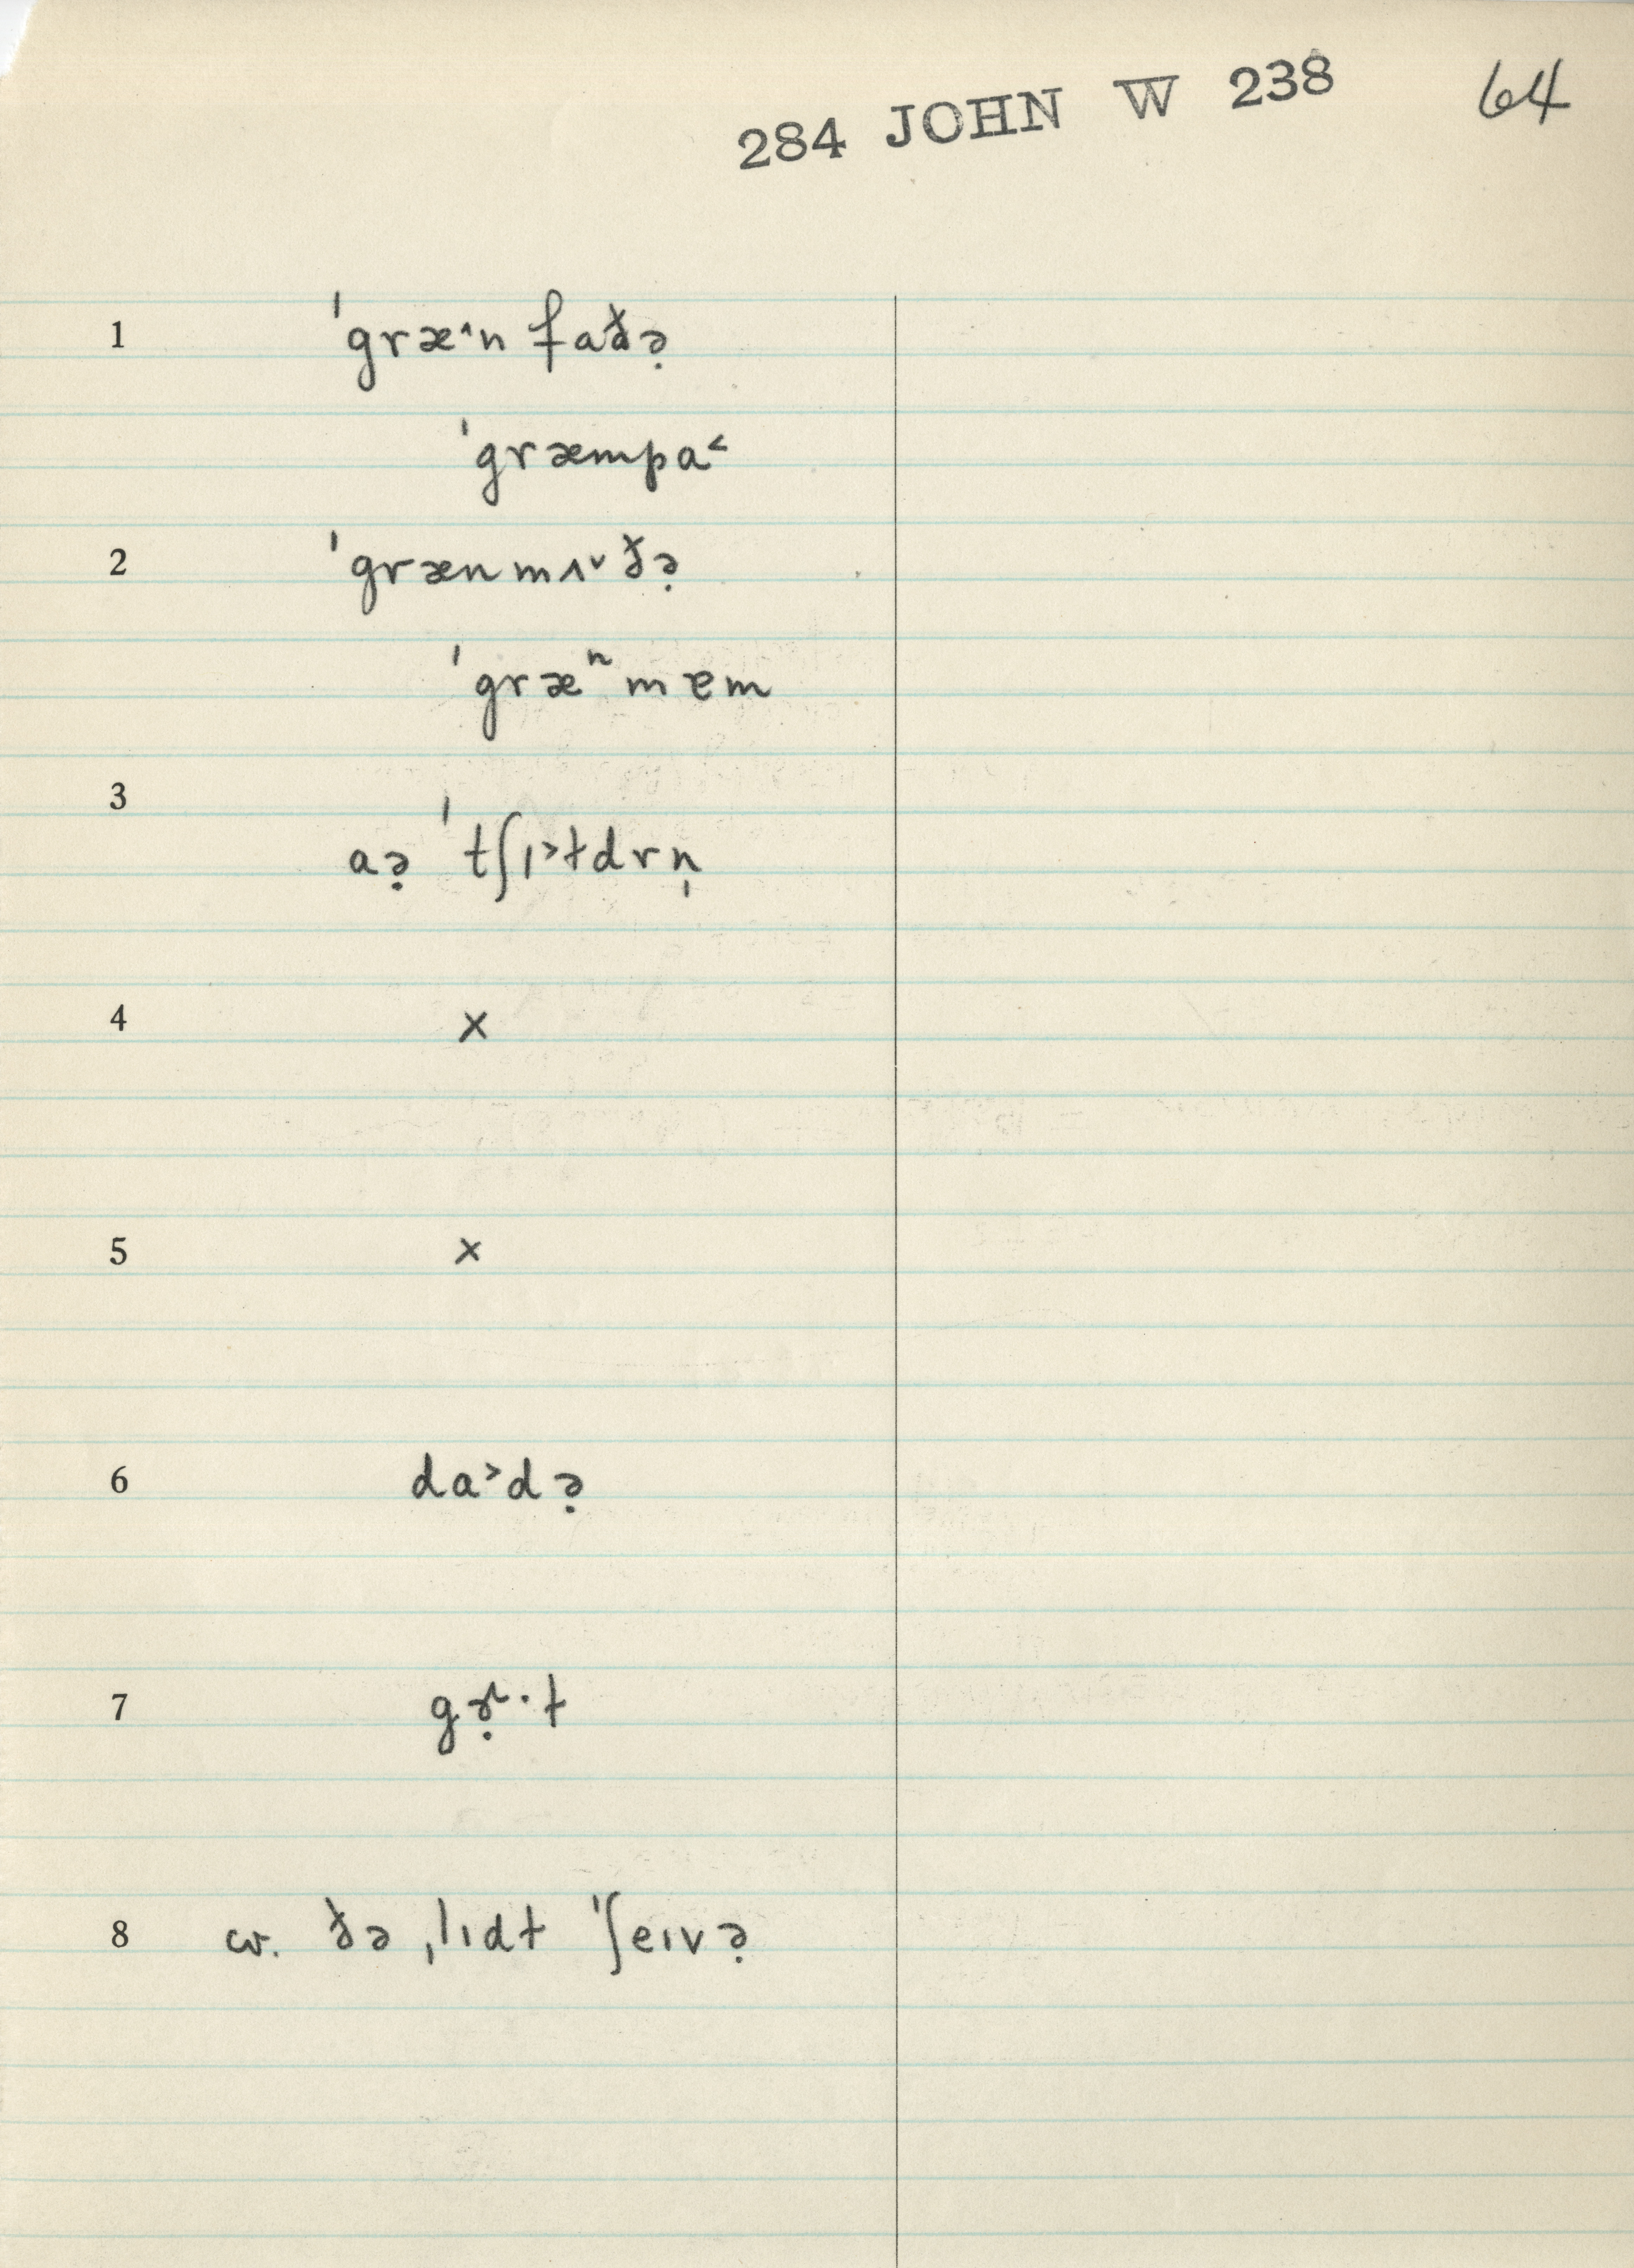 284 JOHN W 238 64
1 ˈgræ˄n faðə̣
ˈgræmpa˂
2 ˈgrænmʌ˅ðə̣
ˈgræⁿmɐm
3
aə̣ ˈtʃɪ˃tdrn̩
4 ×
5 ×
6 da˃də̣
7 gɜ̣˞·t
8 cv. ðə ˌlɪdt ˈʃeɪvə̣